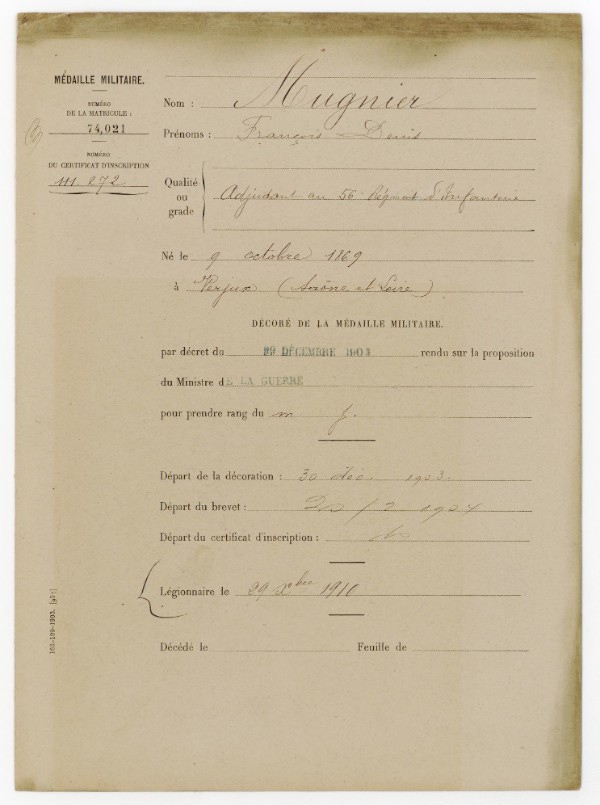 MÉDAILLE MILITAIRE.
NUMÉRO
DE LA MATRICULE :
74,021
NUMÉRO
DU CERTIFICAT D'INSCRIPTION
111.272
Nom : Mugnier
Prénoms : François Denis
Qualité
ou
grade
Adjudant au 56e Régiment d'Infanterie
Né le 9 octobre 1869
à Verjux (Saône et Loire)
DÉCORÉ DE LA MÉDAILLE MILITAIRE.
par décret du 29 DÉCEMBRE 1903 rendu sur la proposition
du Ministre DE LA GUERRE
pour prendre rang du m j.
Départ de la décoration : 30 déc. 1903.
Départ du brevet : 20/2 1904
Départ du certificat d'inscription :
Légionnaire le 29 Xbre 1910
Décédé le Feuille de